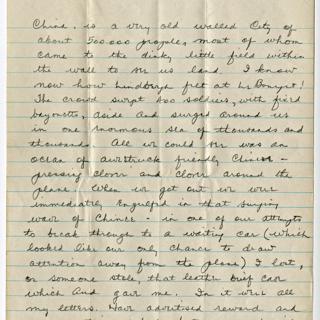 China. is a very old walled City of
about 500 000 people, most of whom
came to the dinky little field within
the wall to see us land. I know
now how Lindbergh felt at Le Bourget!
The crowd swept 800 soldiers, with fixed
bayonetts, aside and surged around us
in one enormous sea of thousands and
thousands. All we could see was an
ocean of awestruck friendly Chinese -
pressing closer and closer around the
plane. When we got out we were
immediately engulfed in that surging
wave of Chinese - in one of our attempts
to break through to a waiting car (which
looked like our only chance to draw
attention away from the plane) I lost,
or someone stole, that leather brief case
which gave me. In it were all
my letters. Have advertised reward and